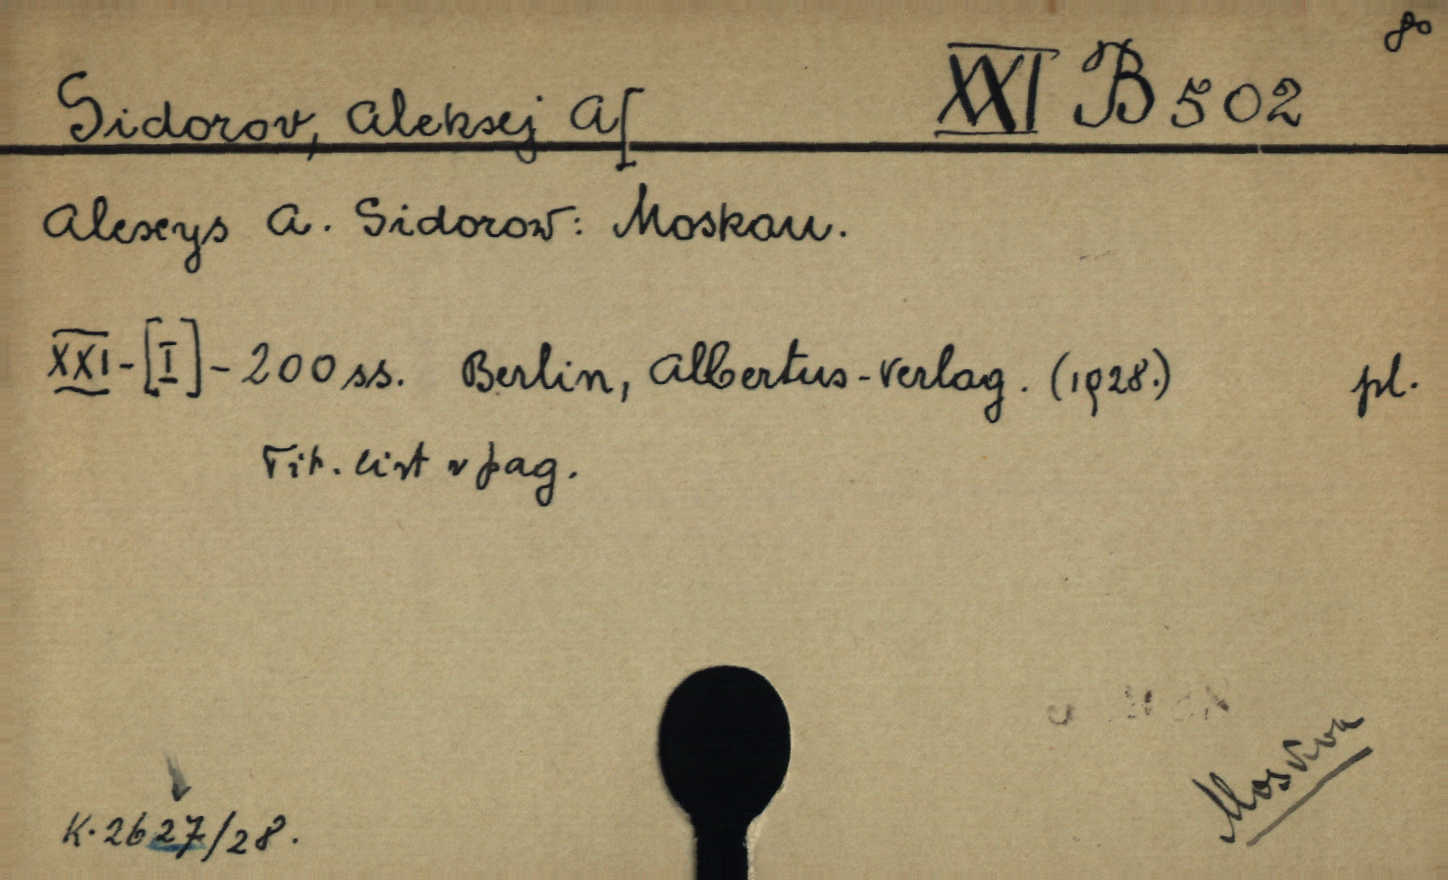 8°
Sidorov, Aleksej A[
XXI B 502
Alexys A. Sidorow: Moskau.
XXI-[I]-200 ss. Berlin, Albertus-Verlag. (1928.) pl.
Tit. list v pag.
K. 2627/28.
Moskva